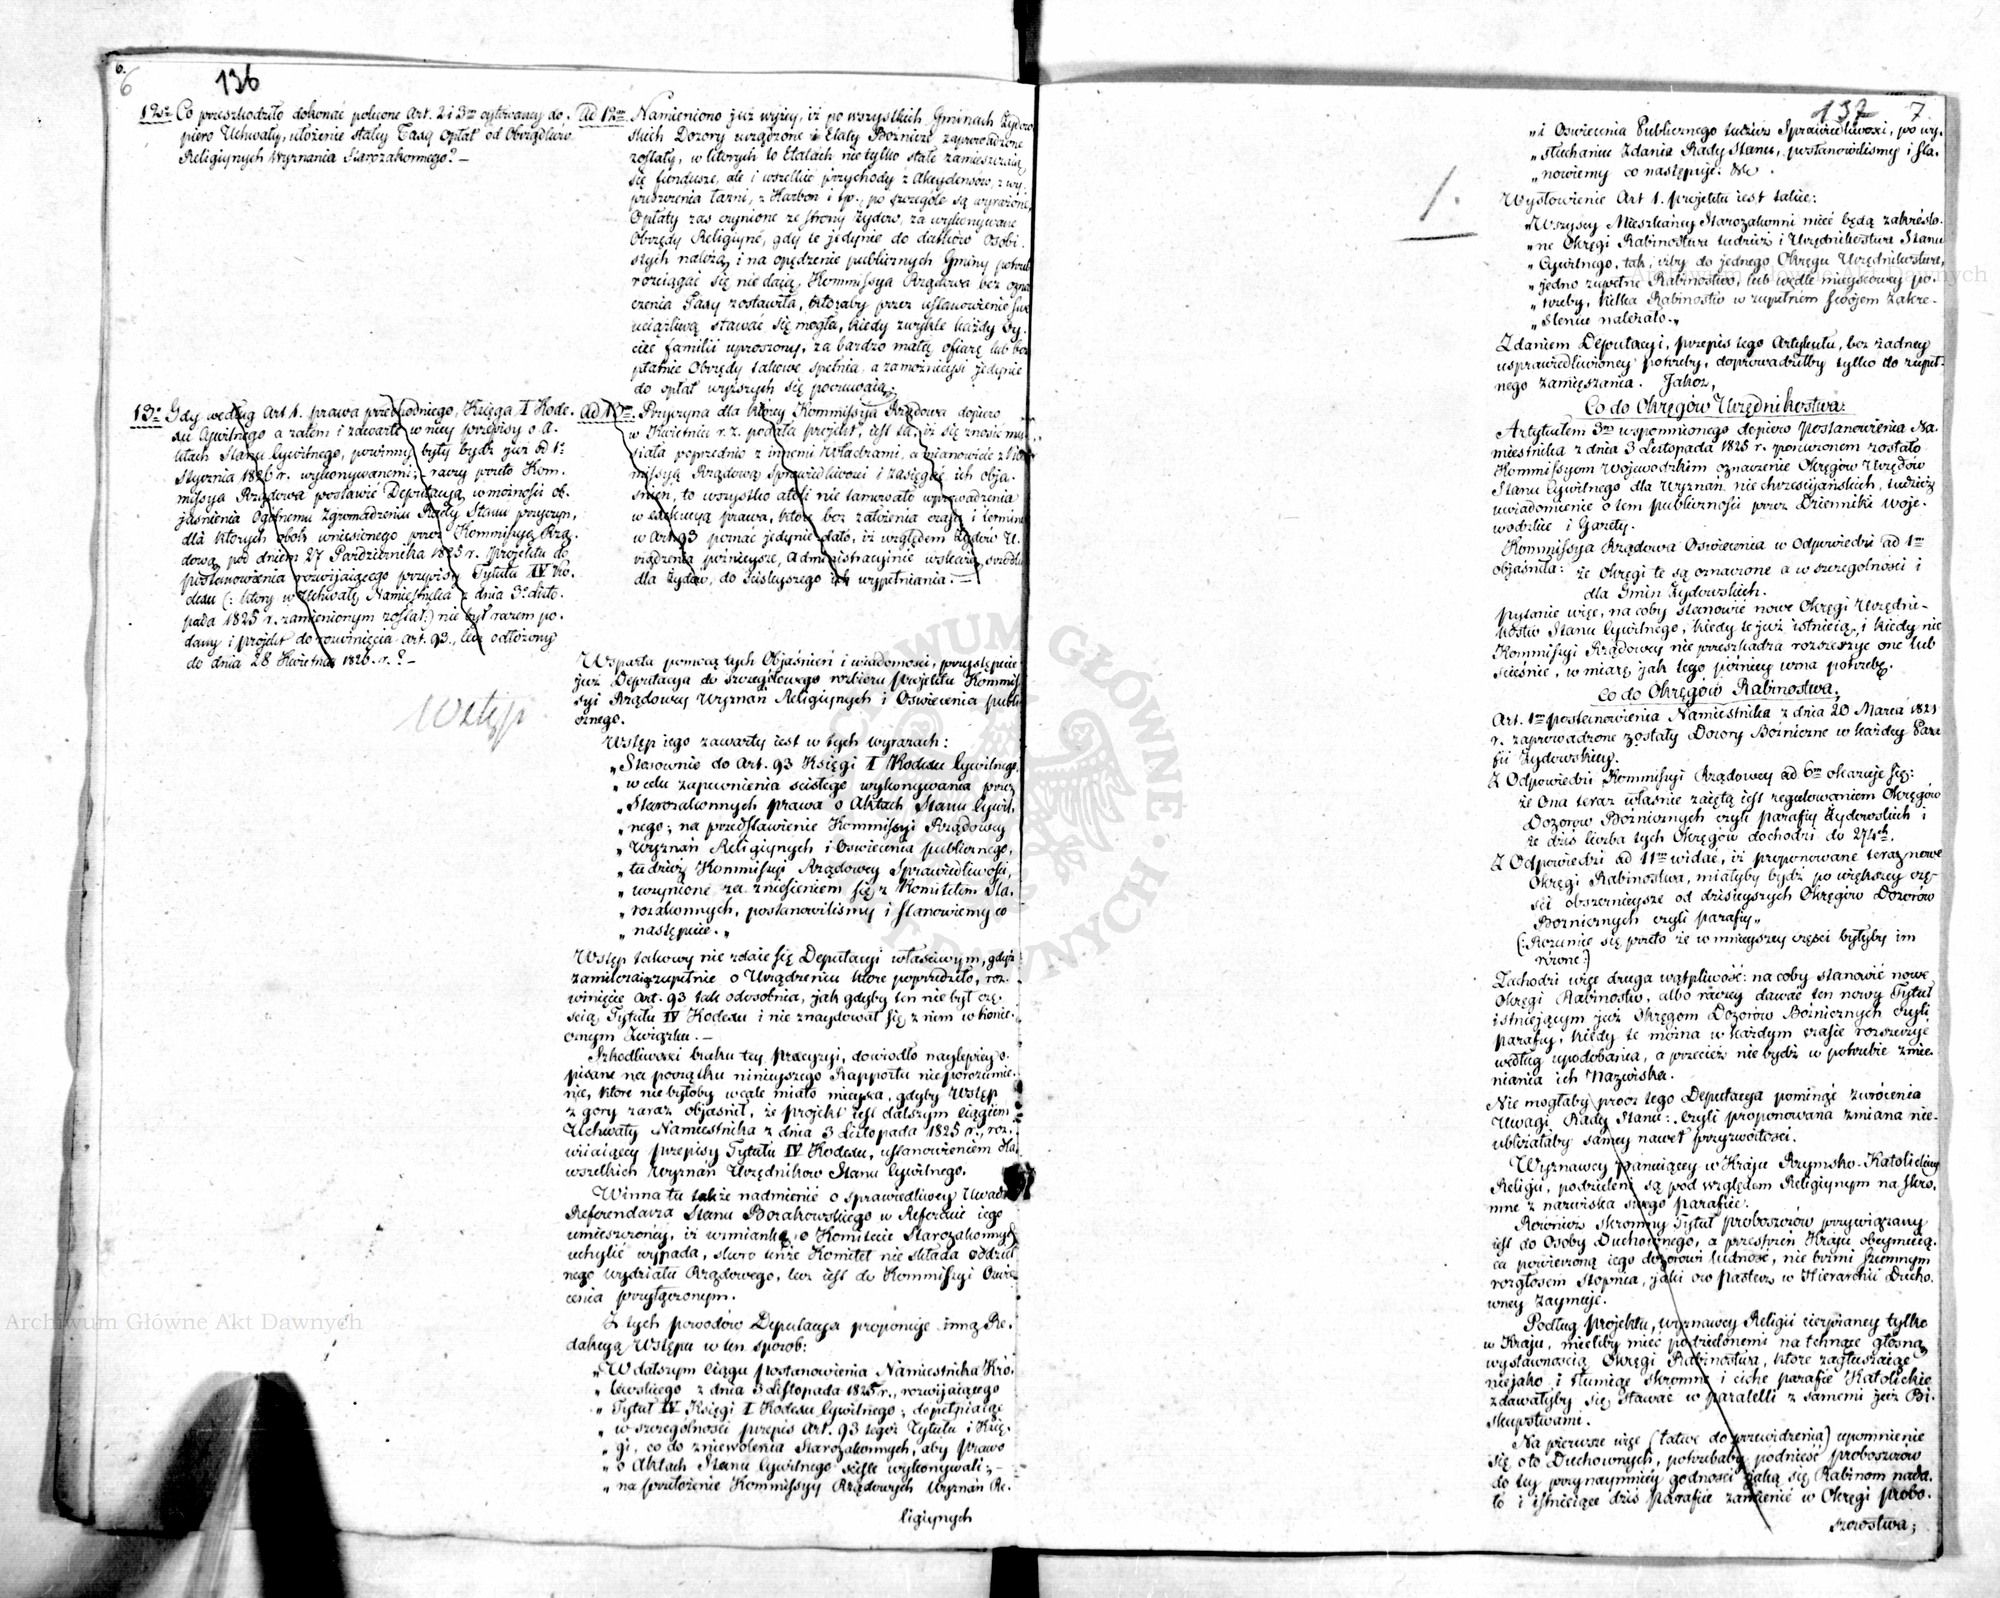 6.
6
136
12o Co przeszkodziło dokonać polecone Art. 2 i 3m cytowanej do-
piero Uchwały, ułożenie stałey Taxy Opłat od Obrządków
Religiynych Wyznania Starozakonnego? —
13o Gdy według Art 1. prawa przechodniego, Księga I Kode-
xu Cywilnego a zatem i zawarte w niey przepisy o A-
ktach Stanu Cywilnego, powinny były bydź już od 1o
Stycznia 1826 r. wykonywanemi; raczy przeto Kom-
missya Rządowa postawić Deputacyą w możności ob-
jaśnienia Ogólnemu Zgromadzeniu Rady Stanu przyczyn,
dla których obok wniesionego przez Kommissyą Rzą-
dową pod dniem 27 Października 1825 r. projektu do
postanowienia rozwijaiącego przepisy Tytułu IV Ko-
dexu (: który w Uchwałę Namiestnika z dnia 3o Listo-
pada 1825 r. zamienionym został:) nie był razem po-
dany i projekt do rozwinięcia art. 93., lecz odłożony
do dnia 28 Kwietnia 1826. r.? —
Wstęp
Ad 12m Namieniono już wyżey, iż po wszystkich Gminach Żydow-
skich Dozory urządzone i Etaty Bożnicze zaprowadzone
zostały, w których to Etatach nie tylko stałe zamieszczaią
się fundusze, ale i wszelkie przychody z Akcydensów, z wy-
puszczenia łaźni, z Karbon i t.p., po szczególe są wyrażone,
Opłaty zaś czynione ze strony Żydów, za wykonywane
Obrzędy Religiyne, gdy te jedynie do datków Osobi-
stych należą, i na opędzenie publicznych Gminy potrzeb
rozciągać się nie daią, Kommissya Rządowa bez ozna-
czenia Taxy zostawiła, któraby przez ustanowienie swe
uciążliwą stawać się mogła, kiedy zwykle każdy Oy-
ciec familii uproszony, za bardzo małą ofiarę lub bez-
płatnie Obrzędy takowe spełnia, a zamożnieysi jedynie
do opłat wyższych się poczuwaią.
Ad 13m Przyczyna dla którey Kommissya Rządowa dopiero
w Kwietniu r. z. podała projekt, jest ta, iż się znosić mu-
siała poprzednio z innemi Władzami, a mianowicie z Kom-
missyą Rządową Sprawiedliwości i zasięgać ich obja-
śnień, to wszystko atoli nie tamowało wprowadzenia
w exekucyą prawa, które bez założenia czasu i terminu
w Art. 93 poznać jedynie dało, iż względem Żydów U-
rządzenia późnieysze, Administracyinie wskażą środki
dla Żydów, do ściśleyszego ich wypełniania. —
Wsparta pomocą tych Objaśnień i wiadomości, przystępuie
już Deputacya do szczegółowego rozbioru projektu Kommis-
syi Rządowey Wyznań Religiynych i Oświecenia publi-
cznego.
Wstęp jego zawarty jest w tych wyrazach:
„Stosownie do Art. 93 Księgi I Kodexu Cywilnego,
„ w celu zapewnienia ścisłego wykonywania przez
„ Starozakonnych prawa o Aktach Stanu Cywil-
„ nego; na przedstawienie Kommissyi Rządowey
„ Wyznań Religiynych i Oświecenia publicznego,
„ tudzież Kommissyi Rządowey Sprawiedliwości,
„ uczynione za zniesieniem się z Komitetem Sta-
„ rozakonnych, postanowiliśmy i stanowiemy co
„ następuie. „
Wstęp takowy nie zdaie się Deputacyi właściwym, gdyż
zamilczaiąc zupełnie o Urządzeniu które poprzedziło, roz-
winięcie Art. 93 tak odosobnia, jak gdyby ten nie był czę-
ścią Tytułu IV Kodexu i nie znaydował się z nim w koniec-
znym Związku. —
Szkodliwości braku tey precyzyi, dowiodło naylepiey o-
pisane na początku ninieyszego Rapportu nieporozumie-
nie, które nie byłoby wcale miało mieysca, gdyby Wstęp
z góry zaraz objaśnił, że projekt jest dalszym ciągiem
Uchwały Namiestnika z dnia 3 Listopada 1825 r., roz-
wiiaiącey przepisy Tytułu IV Kodexu, ustanowieniem dla
wszelkich Wyznań Urzędników Stanu Cywilnego.
Winna tu także nadmienić o sprawiedliwey Uwadze
Referendarza Stanu Borakowskiego w Referacie jego
umieszczoney, iż wzmiankę o Komitecie Starozakonnych
uchylić wypada, skoro tenże Komitet nie składa oddziel-
nego wydziału Rządowego, lecz jest do Kommissyi Oświe-
cenia przyłączonym.
Z tych powodów Deputacya proponuje inną Re-
dakcyą Wstępu w ten sposób:
„W dalszym ciągu postanowienia Namiestnika Kró-
„ lewskiego z dnia 3 Listopada 1825 r., rozwijaiącego
„ Tytuł IV Księgi I Kodexu Cywilnego; dopełniaiąc
„ w szczególności przepis Art. 93 tegoż Tytułu i Księ-
„ gi, co do zniewolenia Starozakonnych, aby prawo
„ o Aktach Stanu Cywilnego ściśle wykonywali; —
„ na przełożenie Kommissyy Rządowych Wyznań Re-
ligiynych
137 7
„i Oświecenia Publicznego tudzież Sprawiedliwości, po wy-
„słuchaniu Zdania Rady Stanu, postanowiliśmy i sta-
„nowiemy co następuje. &c.
1.
Wysłowienie Art 1. projektu jest takie:
„Wszyscy Mieszkańcy Starozakonni mieć będą zakreślo-
„ne Okręgi Rabinostwa tudzież i Urzędnikostwa Stanu
„Cywilnego, tak, iżby do jednego Okręgu Urzędnikostwa,
„jedno zupełne Rabinostwo, lub wedle mieyscowey po-
„trzeby, kilka Rabinostw w zupełném swojem zakre-
„śleniu należało.„
Zdaniem Deputacyi, przepis tego Artykułu, bez żadney
usprawiedliwioney potrzeby, doprowadziłby tylko do zupeł-
nego zamięszania. Jakoż,
Co do Okręgów Urzędnikostwa:
Artykułem 3m wspomnionego dopiero Postanowienia Na-
miestnika z dnia 3 Listopada 1825 r. poruczonem zostało
Kommissyom Wojewodzkim oznaczenie Okręgów Urzędów
Stanu Cywilnego dla Wyznań nie chrześcijańskich, tudzież
uwiadomienie o tem publiczności przez Dzienniki Woje-
wodzkie i Gazety.
Kommissya Rządowa Oświecenia w Odpowiedzi ad 1m
objaśniła: że Okręgi te są oznaczone a w szczególności i
dla Gmin Żydowskich.
Pytanie więc, na coby stanowić nowe Okręgi Urzędni-
kostw Stanu Cywilnego, kiedy te już istnieią, i kiedy nic
Kommissyi Rządowey nie przeszkadza rozszerzyć one lub
ścieśnić, w miarę, jak tego późniey uzna potrzebę.
Co do Okręgów Rabinostwa,
Art. 1m postanowienia Namiestnika z dnia 20 Marca 1821
r. zaprowadzone zostały Dozory Bóżnicze w każdey Para-
fii Żydowskiey.
Z Odpowiedzi Kommissyi Rządowey ad 6m okazuje się:
że Ona teraz właśnie zaiętą jest regulowaniem Okręgów
Dozorów Bóżniczych czyli parafiy Żydowskich i
że dziś liczba tych Okręgów dochodzi do 274ch.
Z Odpowiedzi ad 11m widać, iż proponowane teraz nowe
Okręgi Rabinostwa, miałyby bydź po większey czę-
ści obszernieysze od dzisieyszych Okręgów Dozorów
Bóżniczych czyli parafiy„
(: Rozumie się przeto że w mnieyszey części byłyby im
równe:)
Zachodzi więc druga wątpliwość: na coby stanowić nowe
Okręgi Rabinostw, albo raczey dawać ten nowy Tytuł
istniejącym już Okręgom Dozorów Bóżniczych czyli
parafiy, kiedy te można w każdym czasie rozszerzyć
według upodobania, a przecież nie bydź w potrzebie zmie-
niania ich Nazwiska.
Nie mogłaby prócz tego Deputacya pominąć zwrócenia
Uwagi Rady Stanu: czyli proponowana zmiana nie-
ubliżałaby samey nawet przyzwoitości.
Wyznawcy panuiącey w Kraju Rzymsko-Katolickiey
Religii, podzieleni są pod względem Religiynym na skro-
mne z nazwiska swego parafie.
Również skromny Tytuł proboszczów przywiązany
jest do Osoby Duchownego, a przestrzeń Kraju obeymuią-
ca powierzoną jego dozorowi ludność, nie brzmi szumnym
rozgłosem stopnia, jaki ów Pasterz w Hierarchii Ducho-
wney zaymuje.
Podług projektu, wyznawcy Religii cierpianey tylko
w Kraju, mieliby mieć podzielonemi na tchnące głośną
wystawnością Okręgi Rabinostwa, które zagłuszaiąc
niejako i tłumiąc skromne i ciche parafie Katolickie
zdawałyby się stawać w paralelli z samemi już Bi-
skupstwami.
Na pierwsze więc (łatwe do przewidzenia) upomnienie
się oto Duchownych, potrzebaby podnieść proboszczów
do tey przynaymniey godności jaką się Rabinom nada-
ło i istniejące dziś parafie zamienić w Okręgi probo-
szczostwa;
Archiwum Główne Akt Dawnych
Archiwum Główne Akt Dawnych
ARCHIWUM GŁÓWNE · AKT DAWNYCH ·